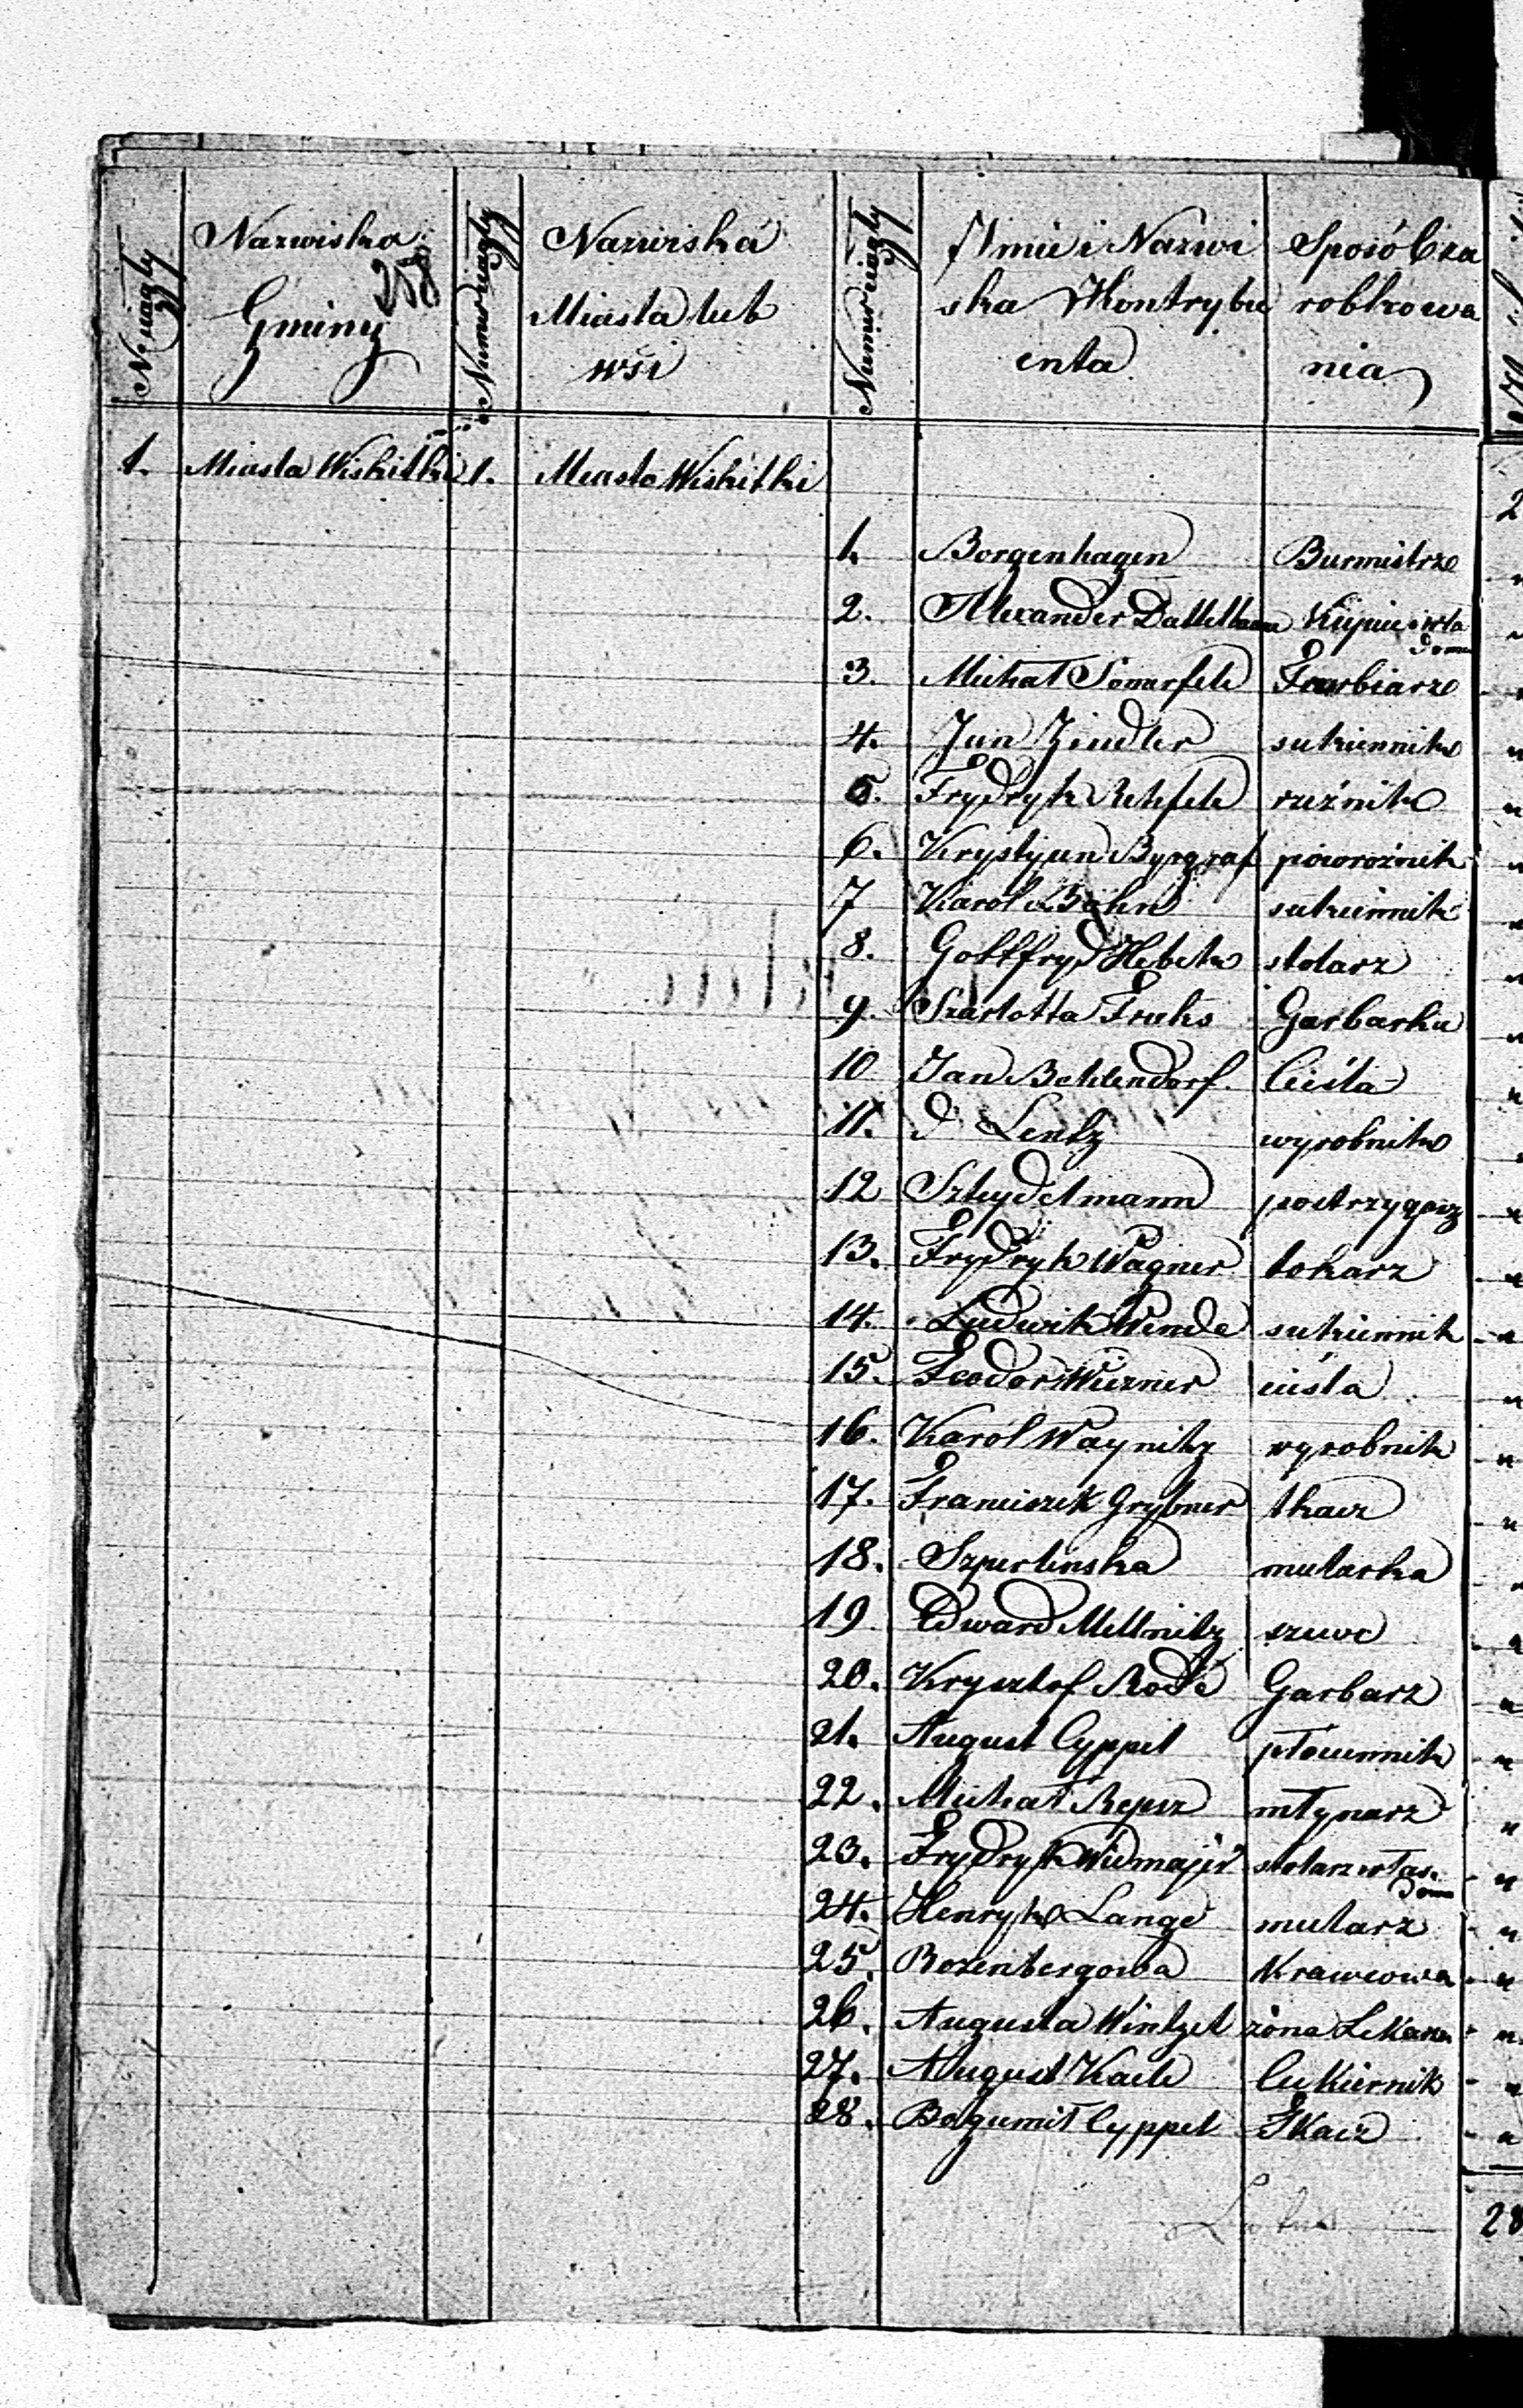 N. ciągły
Nazwiska Gminy
258
Numer ciągły
Nazwiska Miasta lub wsi
Numer ciągły
Imie i Nazwi
ska Kontrybu
enta
Sposób za
robkowa
nia
1. Miasta Wiskitki 1. Miasto Wiskitki
1. Borgenhagen Burmistrz
2. Alexander Kupiec i wła domu
3. Michał Somerfeld Farbiarz
4. Jan Zindler sukiennik
5. Frydryk Rehfeld rzeźnik
6. Krystyan Byrgraf powroźnik
7 Karol Böhm sukiennik
8. Gottfryd stolarz
9. Szarlotta Fruks Garbarka
10 Jan Behlendorf Cieśla
11. d Lentz wyrobnik
12 Szteydelmann postrzygacz
13. Frydryk Wagner tokarz
14. Ludwik Wende sukiennik
15. Teodor Wiezner cieśla
16. Karol Waynitz wyrobnik
17. Franciszek Grybner tkacz
18. Szperlinska mularka
19 Edward Mellnitz szewc
20. Krysztof Rode Garbarz
21. August Cyppel płociennik
22. Michał Rejsz młynarz
23. Frydryk Widmajer stolarz włas. dom
24. Henryk Lange mularz
25. Rozenbergowa Krawcowa
26. Augusta Wintzel żona Lekarza
27. August Cukiernik
28. Bogumił Cyppel Tkacz
28